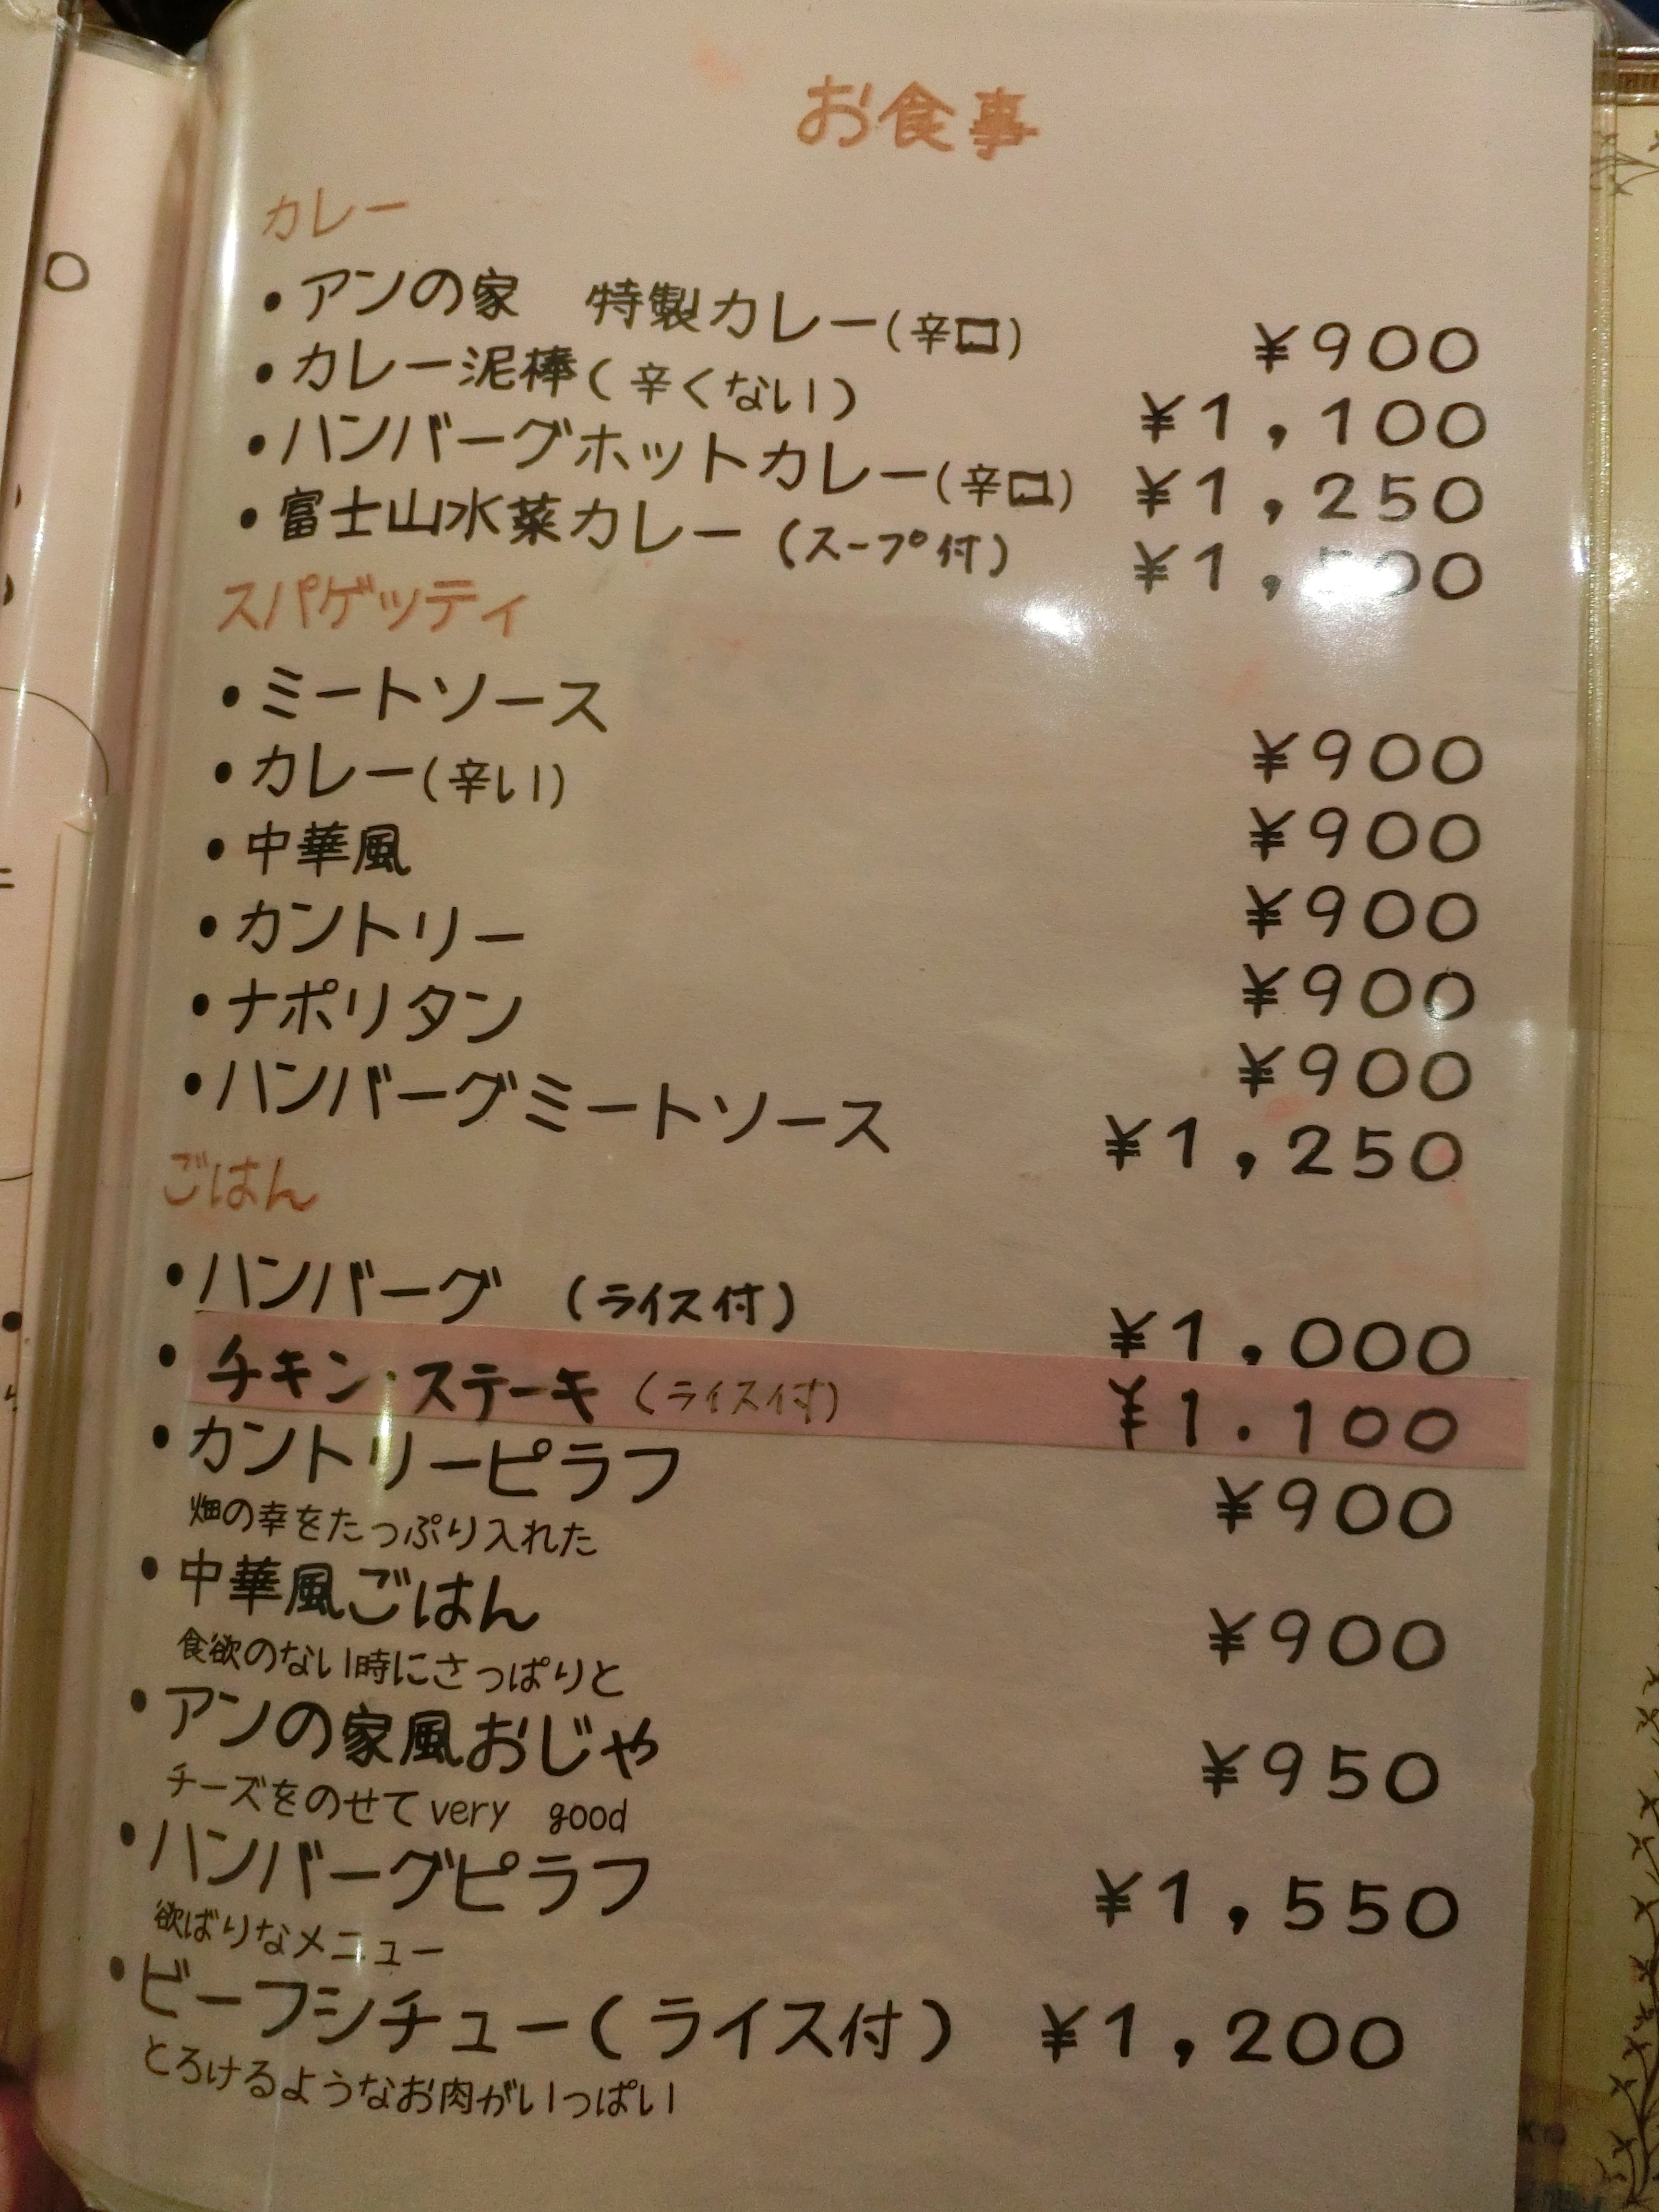 お食事
カレー
・アンの家　特製カレー(辛口) ¥900
・カレー泥棒(辛くない) ¥1,100
・ハンバーグホットカレー(辛口) ¥1,250
・富士山水菜カレー (スープ付)
スパゲッティ
・ミートソース ¥900
・カレー(辛い) ¥900
・中華風 ¥900
・カントリー ¥900
・ナポリタン ¥900
・ハンバーグミートソース ¥1,250
ごはん
・ハンバーグ (ライス付) ¥1,000
・チキン・ステーキ (ライス付) ¥1.100
・カントリーピラフ ¥900
畑の幸をたっぷり入れた
・中華風ごはん ¥900
食欲のない時にさっぱりと
・アンの家風おじや ¥950
チーズをのせて very good
・ハンバーグピラフ ¥1,550
欲ばりなメニュー
・ビーフシチュー(ライス付) ¥1,200
とろけるようなお肉がいっぱい